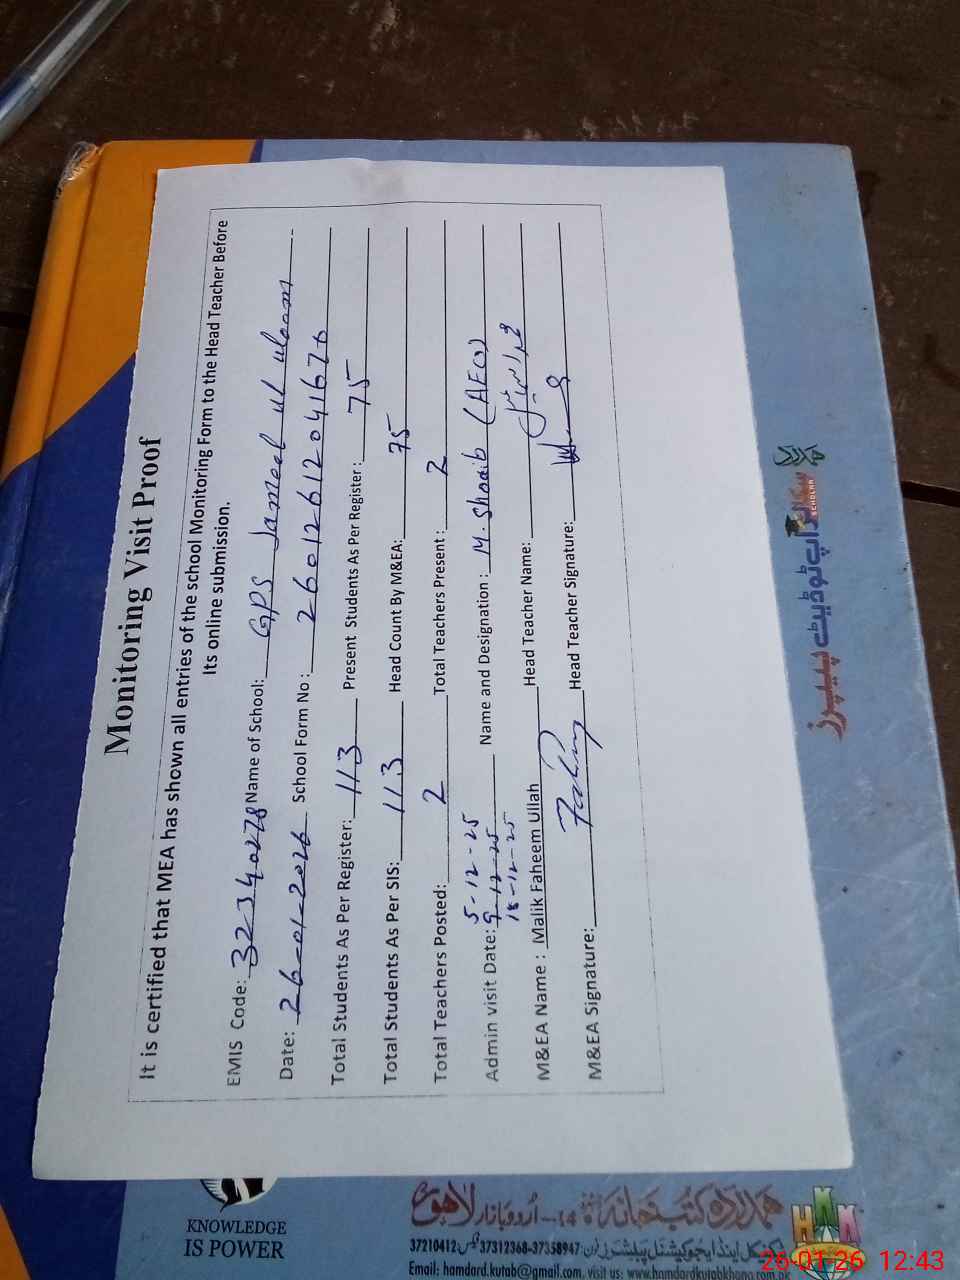 Monitoring Visit Proof
It is certified that MEA has shown all entries of the school Monitoring Form to the Head Teacher Before
Its online submission.
EMIS Code: 32340278 Name of School: GPS Jameel ul uloom
Date: 26-01-2026 School Form No : 26012612041676
Total Students As Per Register: 113 Present Students As Per Register : 75
Total Students As Per SIS: 113 Head Count By M&EA: 75
Total Teachers Posted: 2 Total Teachers Present : 2
5-12-25
Admin visit Date: 9-12-25 Name and Designation : M. Shoaib (AEO)
18-12-25
M&EA Name : Malik Faheem Ullah Head Teacher Name:
M&EA Signature: Head Teacher Signature:
ہمدرد
سکالر اپ ٹو ڈیٹ پیپرز
SCHOLAR
KNOWLEDGE
IS POWER
ہمدرد کتب خانہ 14-اُردو بازار لاہور
37210412 37312368-37358947
Email: hamdard.kutab@gmail.com, visit us: www.hamdardkutabkhana.com.pk
HKK
26-01-26 12:43